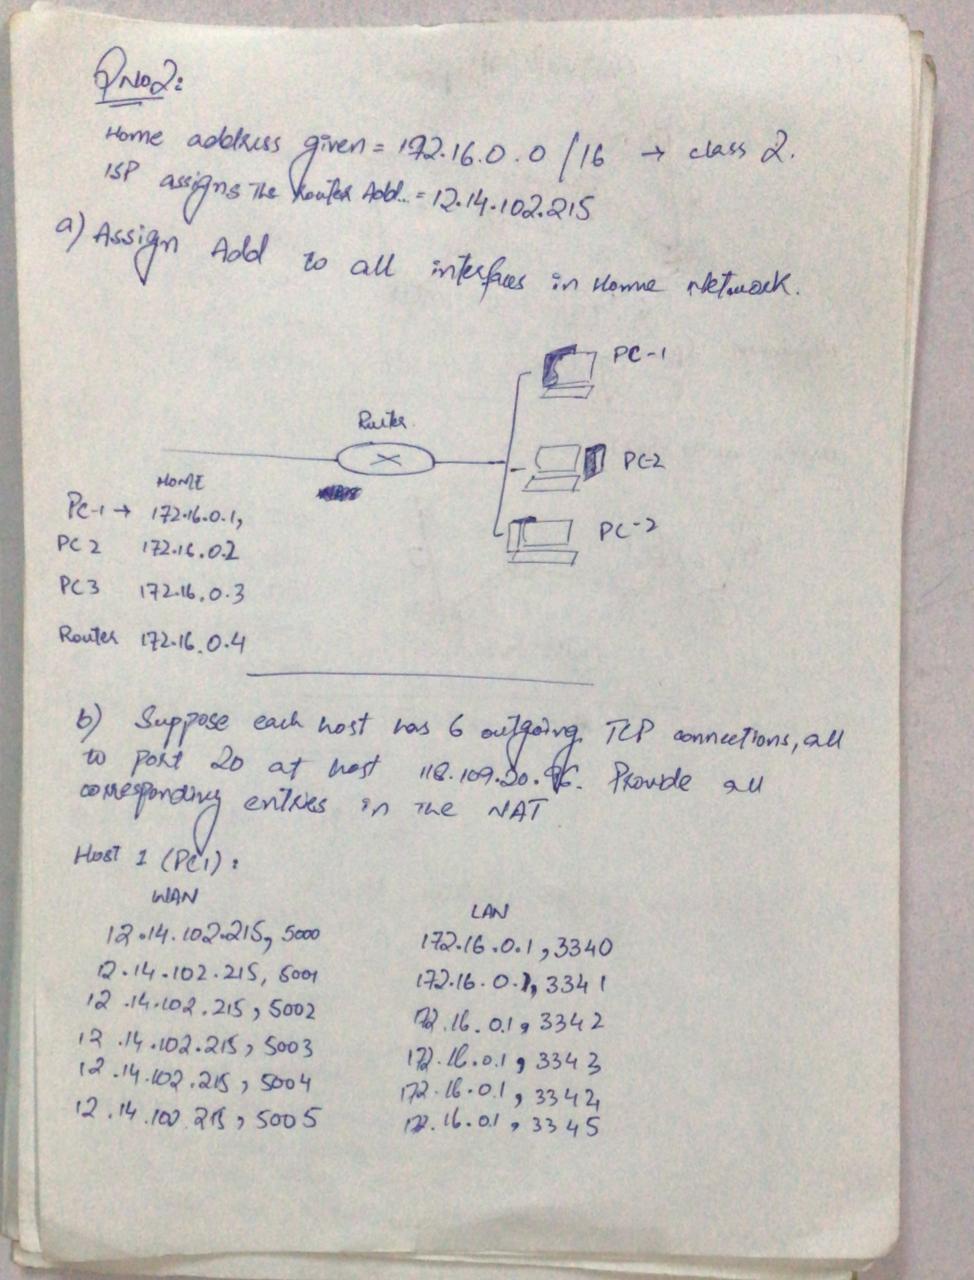 QNo2:
Home address given = 172.16.0.0 /16 → class 2.
ISP assigns The Router Add.. = 12.14.102.215
a) Assign Add to all interfaces in Home Network.
Router
PC-1
PC-2
PC-2
HOME
PC-1 → 172.16.0.1,
PC 2 172.16.0.2
PC3 172.16.0.3
Router 172.16.0.4
b) Suppose each host has 6 outgoing TCP connections, all
to port 20 at host 118.109.20.96. Provide all
corresponding entries in the NAT
Host 1 (PC1):
WAN LAN
12.14.102.215, 5000 172.16.0.1, 3340
12.14.102.215, 5001 172.16.0.1, 3341
12.14.102.215, 5002 172.16.0.1, 3342
12.14.102.215, 5003 172.16.0.1, 3343
12.14.102.215, 5004 172.16.0.1, 3344
12.14.102.215, 5005 172.16.0.1, 3345